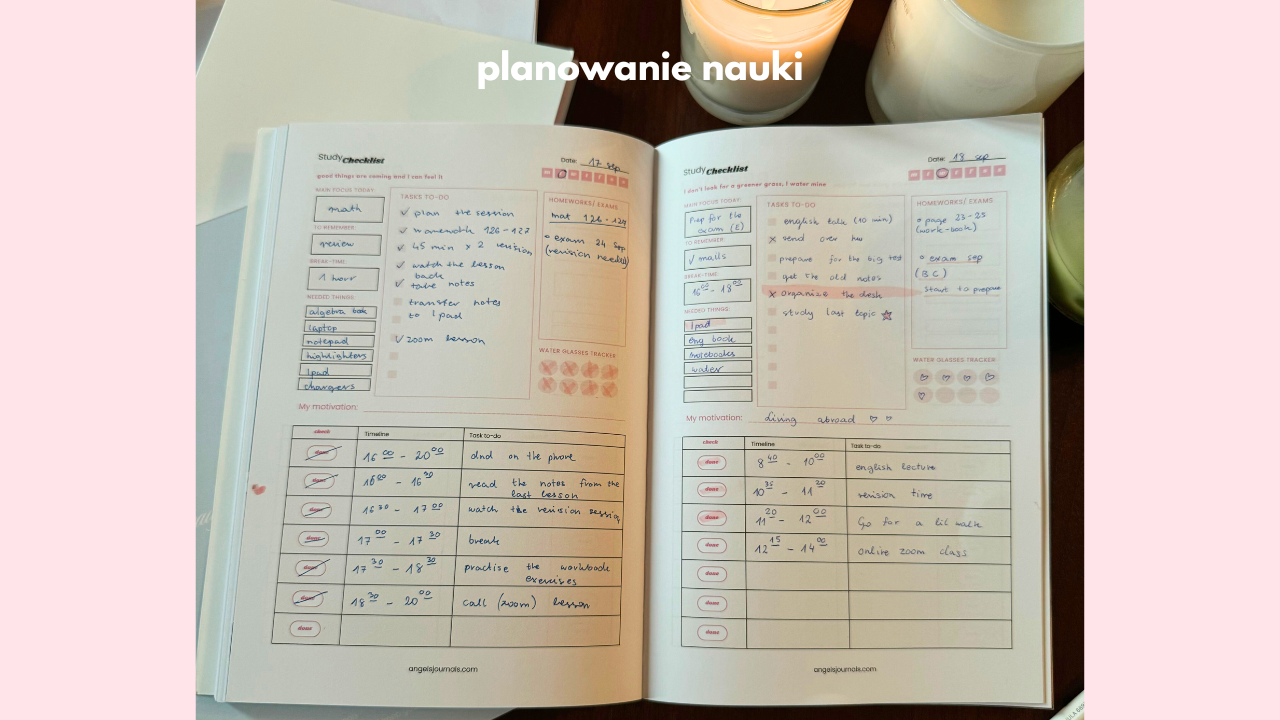 planowanie nauki
Study Checklist
Date: 17 sep
good things are coming and I can feel it
MAIN FOCUS TODAY:
math
TO REMEMBER:
review
BREAK-TIME:
1 hour
NEEDED THINGS:
algebra book
laptop
notepad
highlighters
ipad
chargers
TASKS TO-DO
plan the session
homework 126-127
45 min x 2 revision
watch the lesson
back
take notes
transfer notes
to ipad
zoom lesson
HOMEWORKS/ EXAMS:
mat 126-127
exam 24 sep
(revision needed)
WATER GLASSES TRACKER
My motivation:
check Timeline Task to-do
done 16 00 - 20 00 dnd on the phone
done 16 00 - 16 30 read the notes from the
last lesson
done 16 30 - 17 00 watch the revision session
done 17 00 - 17 30 break
done 17 30 - 18 30 practise the workbook
exercises
done 18 30 - 20 00 call (zoom) lesson
done
angelsjournals.com
Study Checklist
Date: 18 sep
I don't look for a greener grass, I water mine
MAIN FOCUS TODAY:
Prep for the
exam (E)
TO REMEMBER:
√ mails
BREAK-TIME:
16 00 - 18 00
NEEDED THINGS:
ipad
eng book
notebooks
water
TASKS TO-DO
english talk (10 min)
x send over hw
prepare for the big test
get the old notes
x organize the desk
study last topic
HOMEWORKS/ EXAMS:
page 23-25
(work-book)
exam sep
(BC)
start to prepare
WATER GLASSES TRACKER
My motivation: living abroad
check Timeline Task to-do
done 8 40 - 10 00 english lecture
done 10 35 - 11 20 revision time
done 11 20 - 12 00 Go for a lil walk
done 12 15 - 14 00 online zoom class
done
done
done
angelsjournals.com